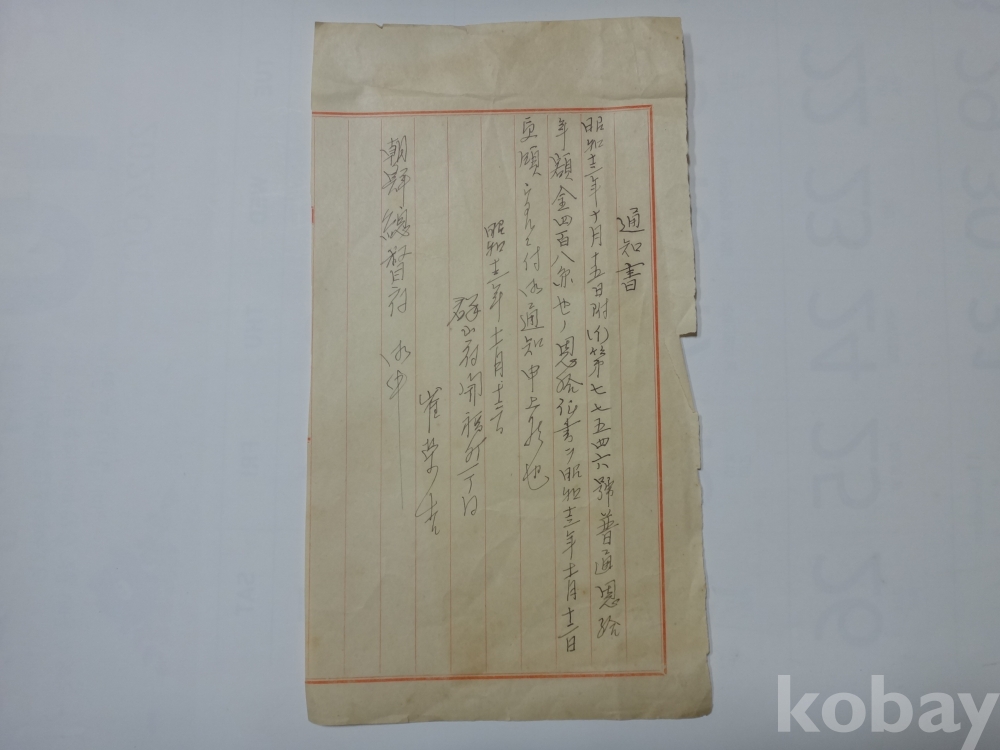 通知書
昭和十三年十月十五日附 第七七五四六號普通恩給
年額金四百八 也ノ恩給証書ヲ昭和十三年十一月十三日
通知申上 也
昭和十三年十一月十三日
府開福町一丁目
崔
朝鮮總督府 御中
kobay